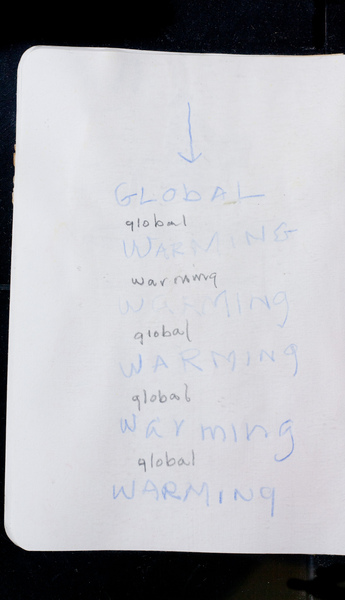 GLOBAL
global
WARMING
warming
WARMING
global
WARMING
global
warming
global
WARMING